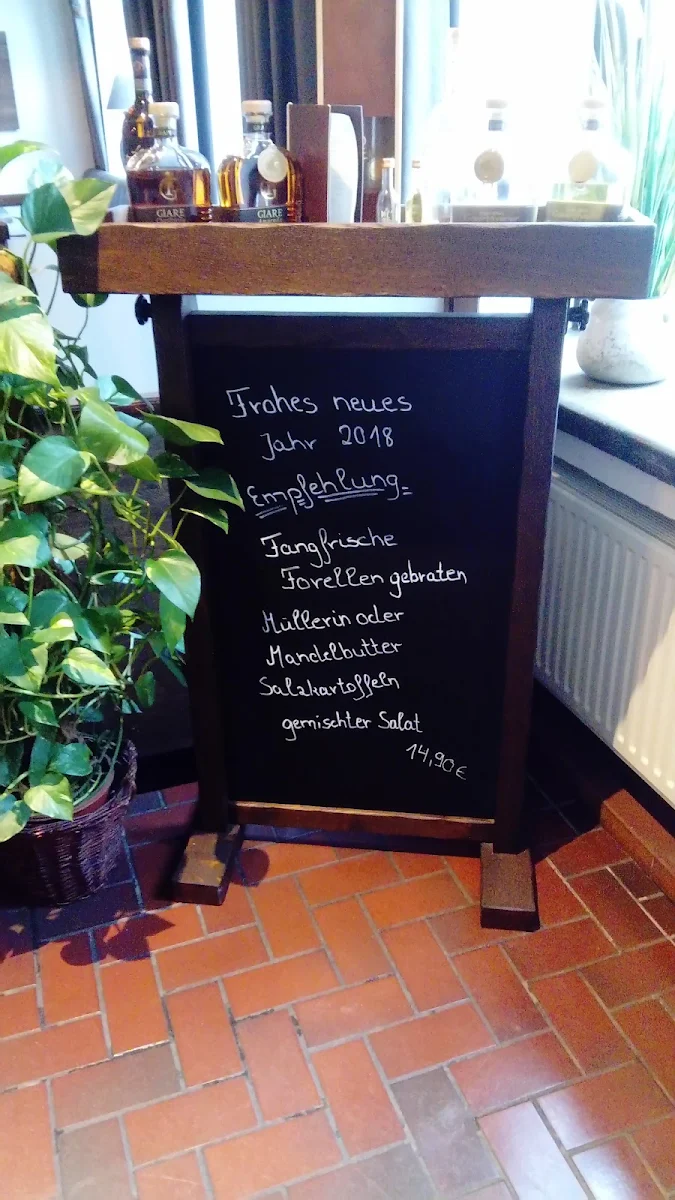 GIARE
GIARE
Frohes neues
Jahr 2018
Empfehlung
Fangfrische
Forellen gebraten
Müllerin oder
Mandelbutter
Salzkartoffeln
gemischter Salat
14,90€